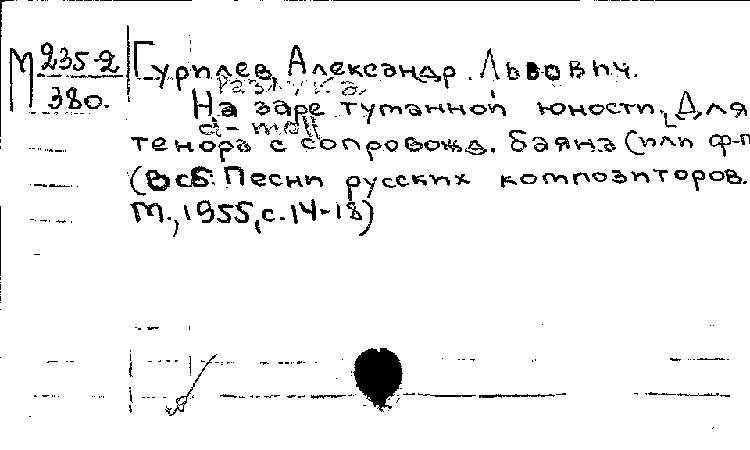 М 235-2
380.
Гурилев, Александр Львович.
Разлука
На заре туманной юности, [Для
d-moll
тенора с сопровожд. баяна (или ф-п
(В сб. Песни русских композиторов.
М., 1955, с. 14-18)